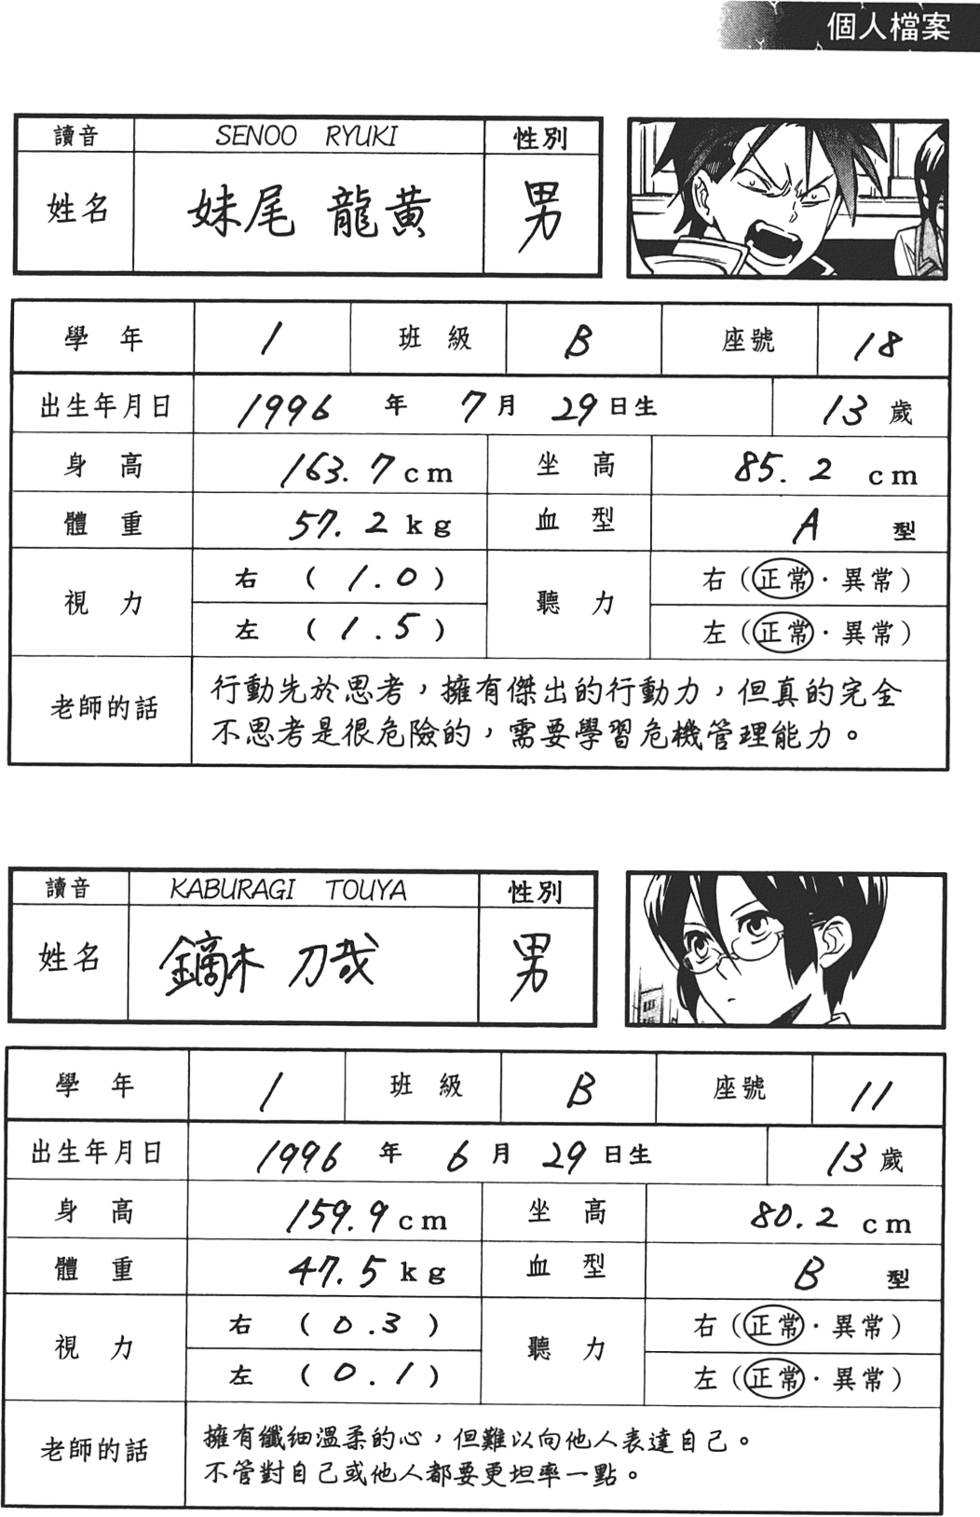 個人檔案
讀音 SENOO RYUKI 性別
姓名 妹尾 龍黃 男
學年 1 班級 B 座號 18
出生年月日 1996 年 7 月 29 日生 13 歲
身高 163.7 cm 坐高 85.2 cm
體重 57.2 kg 血型 A 型
視力 右 (1.0) 聽力 右 (正常・異常)
左 (1.5) 左 (正常・異常)
老師的話 行動先於思考，擁有傑出的行動力，但真的完全
不思考是很危險的，需要學習危機管理能力。
讀音 KABURAGI TOUYA 性別
姓名 鏑木 刀哉 男
學年 1 班級 B 座號 11
出生年月日 1996 年 6 月 29 日生 13 歲
身高 159.9 cm 坐高 80.2 cm
體重 47.5 kg 血型 B 型
視力 右 (0.3) 聽力 右 (正常・異常)
左 (0.1) 左 (正常・異常)
老師的話 擁有纖細溫柔的心，但難以向他人表達自己。
不管對自己或他人都要更坦率一點。